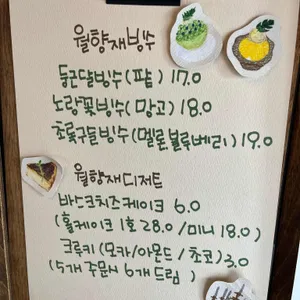 월향재빙수
둥근달빙수(팥) 17.0
노랑꽃빙수(망고) 18.0
초롱구들빙수(멜론블루베리) 19.0
월향재디저트
바스크치즈케이크 6.0
(홀케이크 1호 28.0 / 미니 18.0)
크루키(모카/아몬드/초코) 3.0
(5개 주문시 6개 드림)